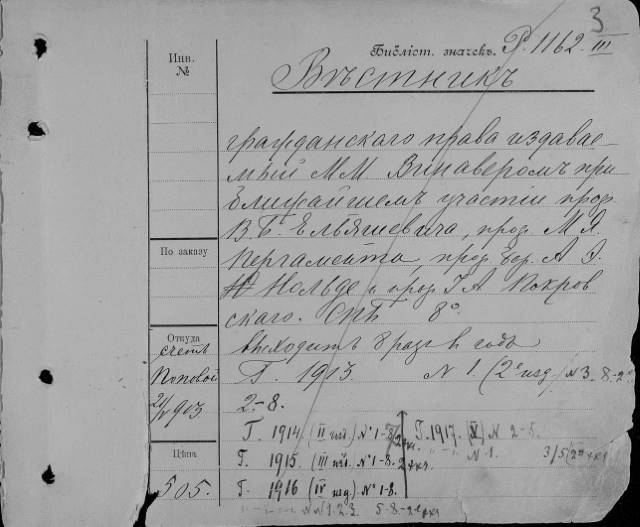 3
Инв. №
Библіот. значекъ. Р. 1162. III
Вѣстникъ
гражданскаго права издавае-
мый М.М. Винаверомъ при
ближайшемъ участіи проф.
В.Б. Ельяшевича, проф. М.Я.
По заказу
Пергамента, проф. бар. А.Э.
Нольде и проф. І.А. Покров
скаго. СПБ 8°.
Откуда
счетъ
Поповой
выходитъ 8 разъ въ годъ
Г. 1913. N 1. (2е изд.) N 3.
2–8.
Г. 1914. (II изд.) № 1–8 Г. 1917. (V) N 2–5.
Цѣна
Г. 1915. (III изд.) № 1–8. N 1.
505.
Г. 1916 (IV изд.) № 1–8.